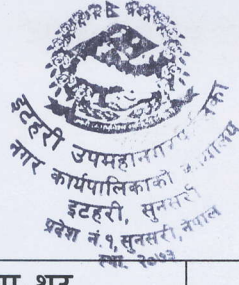 इटहरी उपमहानगरपालिका
नगर कार्यपालिकाको कार्यालय
इटहरी, सुनसरी
प्रदेश नं. १, सुनसरी, नेपाल
स्था. २०७३
थर